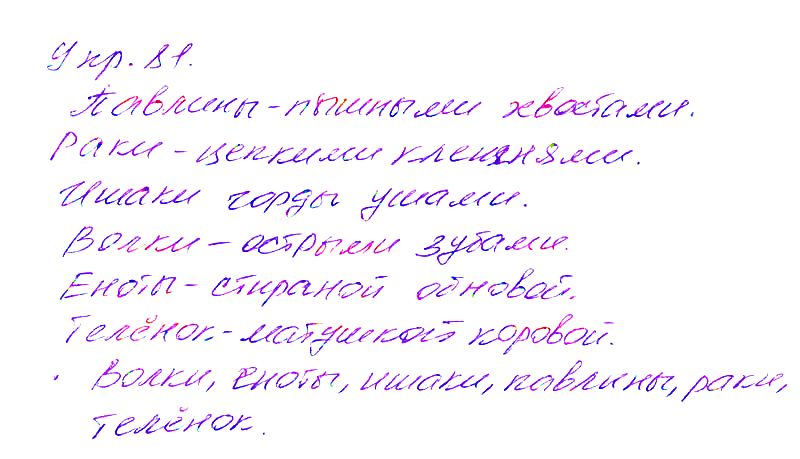 Упр. 81.
Павлины - пышными хвостами.
Раки - цепкими клешнями.
Ишаки горды ушами.
Волки - острыми зубами.
Еноты - стираной обновой.
Телёнок - матушкой коровой.
Волки, еноты, ишаки, павлины, раки,
телёнок.